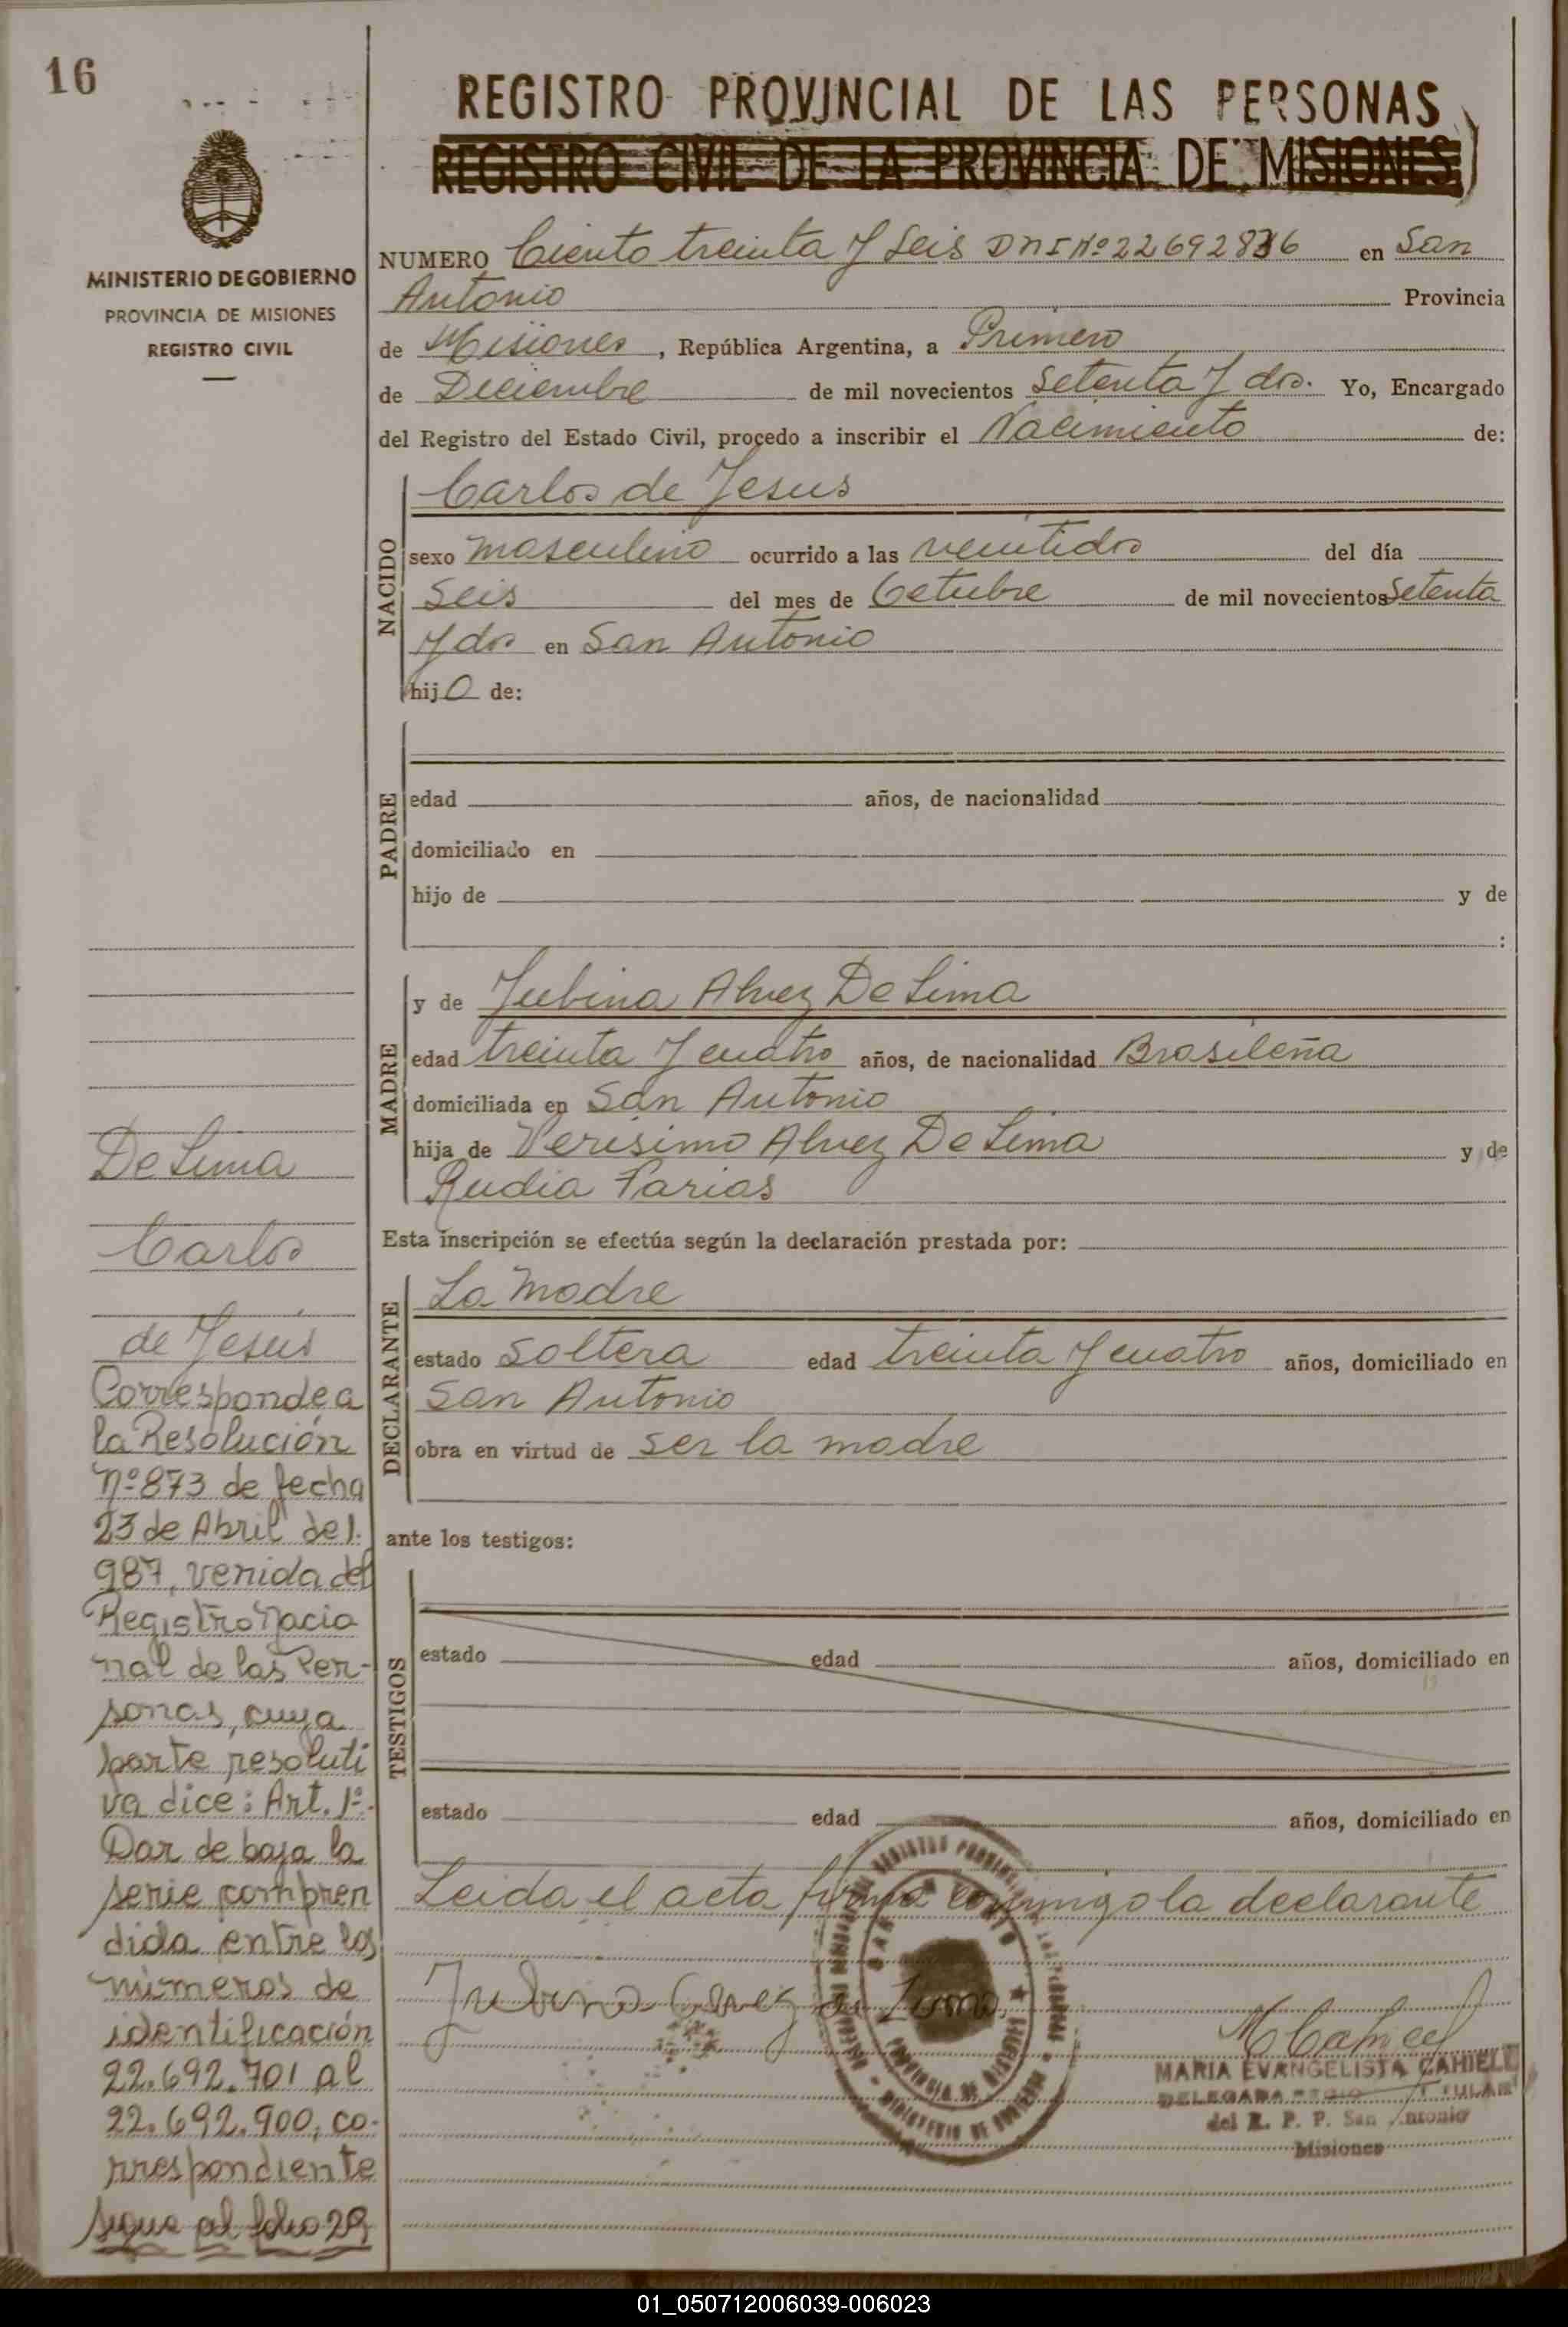 16
REGISTRO PROVINCIAL DE LAS PERSONAS
REGISTRO CIVIL DE LA PROVINCIA DE MISIONES
MINISTERIO DE GOBIERNO
PROVINCIA DE MISIONES
REGISTRO CIVIL
NUMERO Ciento treinta y Seis DNI Nº 22692836 en San
Antonio Provincia
de Misiones, República Argentina, a Primero
de Diciembre de mil novecientos Setenta y dos. Yo, Encargado
del Registro del Estado Civil, procedo a inscribir el Nacimiento de:
NACIDO
Carlos de Jesus
sexo masculino ocurrido a las veintidos del día
Seis del mes de Octubre de mil novecientos Setenta
y dos en San Antonio
hijo de:
PADRE
edad años, de nacionalidad
domiciliado en
hijo de y de
:
MADRE
y de Jubina Alvez De Lima
edad treinta y cuatro años, de nacionalidad Brasileña
domiciliada en San Antonio
hija de Verisimo Alvez De Lima y de
Rudia Farias
Esta inscripción se efectúa según la declaración prestada por:
DECLARANTE
La madre
estado Soltera edad treinta y cuatro años, domiciliado en
San Antonio
obra en virtud de ser la madre
ante los testigos:
TESTIGOS
estado edad años, domiciliado en
estado edad años, domiciliado en
Leida el acta firma conmigo la declarante
Jubina Alvez de Lima
MARIA EVANGELISTA CAHIELL
DELEGADA TITULAR
del R. P. P. San Antonio
Misiones
De Lima
Carlos
de Jesús
Corresponde a
la Resolución
Nº 873 de fecha
23 de Abril de 1.
987, venida del
Registro Nacio
nal de las Per-
sonas, cuya
parte resoluti
va dice: Art. 1º.
Dar de baja la
serie compren
dida entre los
números de
identificación
22.692.701 al
22.692.900, co-
rrespondiente
sigue al folio 29
01_050712006039-006023